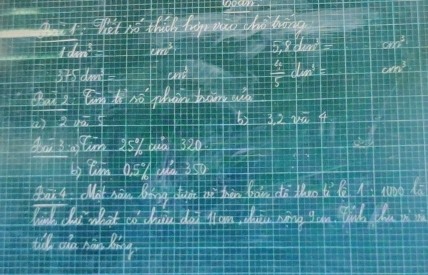 Toán:
Bài 1: Viết số thích hợp vào chỗ trống
1dm³ = cm³ 5,8 dm³ = cm³
375dm³ = cm³ 4/5 dm³ = cm³
Bài 2: Tìm tỉ số phần trăm của
a) 2 và 5 b) 3,2 và 4
Bài 3: a) Tìm 25% của 320
b) Tìm 0,5% của 350
Bài 4: Một sân bóng được vẽ trên bản đồ theo tỉ lệ 1 : 1000 là
hình chữ nhật có chiều dài 11cm, chiều rộng 9cm. Tính chu vi và
tích của sân bóng.